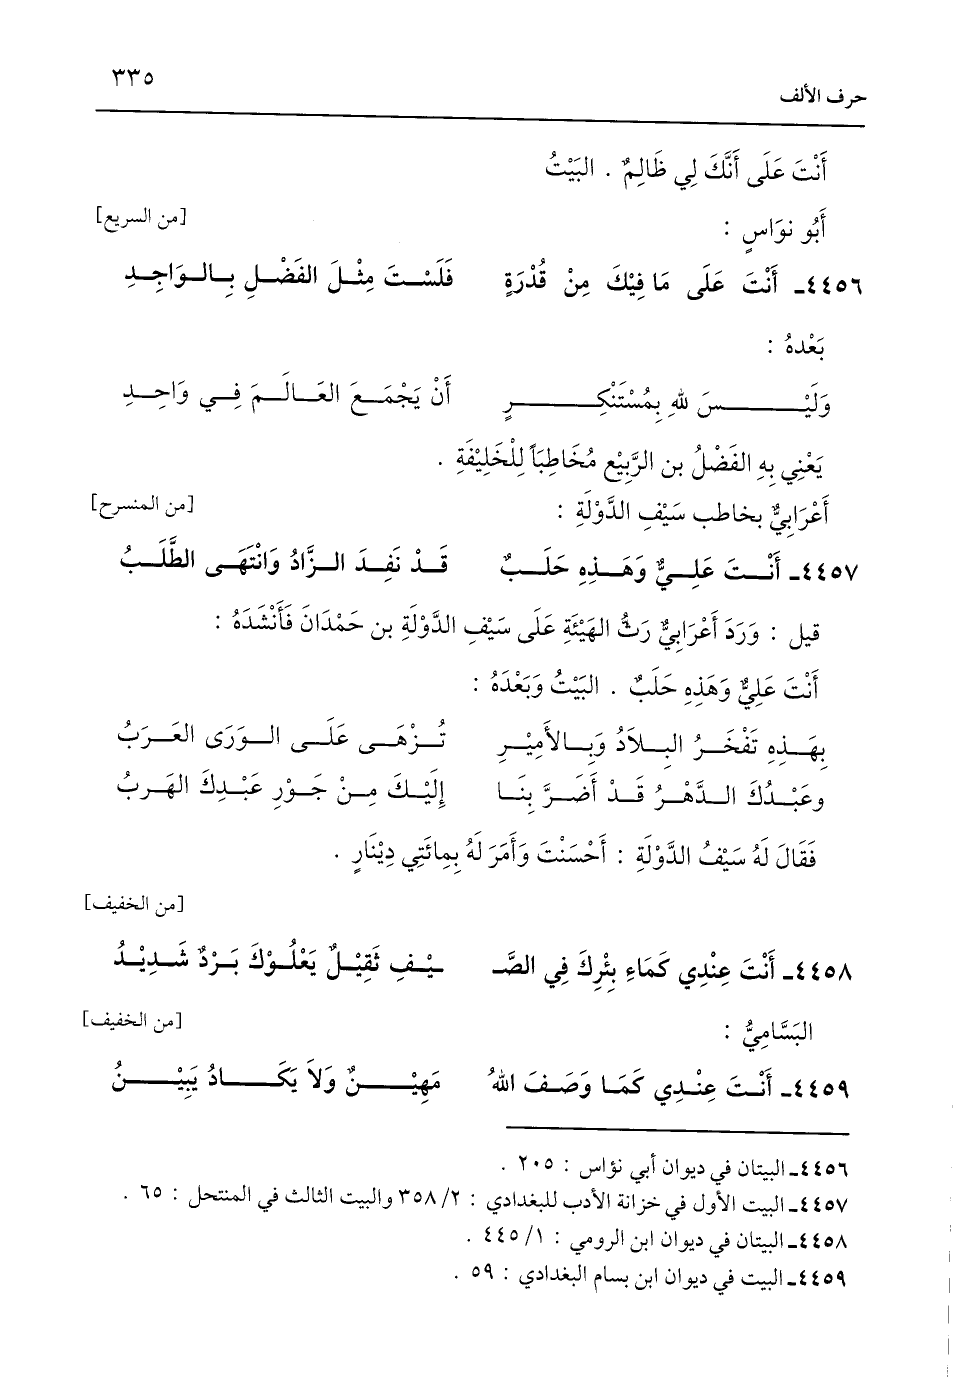 ٣٣٥
حرف الألف
أَنْتَ عَلَى أَنَّكَ لِي ظَالِمٌ . البَيْتُ
أَبُو نوَاسٍ : [من السريع]
٤٤٥٦ـ أَنْتَ عَلَى مَا فِيْكَ مِنْ قُدْرَةٍ فَلَسْتَ مِثْلَ الفَضْلِ بِالوَاجِدِ
بَعْدهُ :
وَلَيْسَ للهِ بِمُسْتَنْكِرٍ أَنْ يَجْمَعَ العَالَمَ فِي وَاحِدِ
يَعْنِي بِهِ الفَضْلُ بن الرَّبِيْع مُخَاطِبَاً لِلْخَلِيْفَةِ .
أَعْرَابِيٌّ يخاطب سَيْفِ الدَّوْلَةِ : [من المنسرح]
٤٤٥٧ـ أَنْتَ عَلِيٌّ وَهَذِهِ حَلَبٌ قَدْ نَفِدَ الزَّادُ وَانْتَهَى الطَّلَبُ
قيل : وَرَدَ أَعْرَابِيٌّ رَثُّ الهَيْئَةِ عَلَى سَيْفِ الدَّوْلَةِ بن حَمْدَانَ فَأَنْشَدَهُ :
أَنْتَ عَلِيٌّ وَهَذِهِ حَلَبٌ . البَيْتُ وَبَعْدَهُ :
بِهَذِهِ تَفْخَرُ البِلاَدُ وَبِالأَمِيْرِ تُزْهَى عَلَى الوَرَى العَرَبُ
وعَبْدُكَ الدَّهْرُ قَدْ أَضَرَّ بِنَا إِلَيْكَ مِنْ جَوْرِ عَبْدِكَ الهَرَبُ
فَقَالَ لَهُ سَيْفُ الدَّوْلَةِ : أَحْسَنْتَ وَأَمَرَ لَهُ بِمِائَتِي دِيْنَارٍ .
[من الخفيف]
٤٤٥٨ـ أَنْتَ عِنْدِي كَمَاءِ بِئْرِكَ فِي الصَّـ ـيْفِ ثَقِيْلٌ يَعْلُوْكَ بَرْدٌ شَدِيْدُ
البَسَّامِيُّ : [من الخفيف]
٤٤٥٩ـ أَنْتَ عِنْدِي كَمَا وَصَفَ اللهُ مَهِيْنٌ وَلاَ يَكَادُ يَبِيْنُ
٤٤٥٦ـ البيتان في ديوان أبي نؤاس : ٢٠٥ .
٤٤٥٧ـ البيت الأول في خزانة الأدب للبغدادي : ٢/ ٣٥٨ والبيت الثالث في المنتحل : ٦٥ .
٤٤٥٨ـ البيتان في ديوان ابن الرومي : ١/ ٤٤٥ .
٤٤٥٩ـ البيت في ديوان ابن بسام البغدادي : ٥٩ .